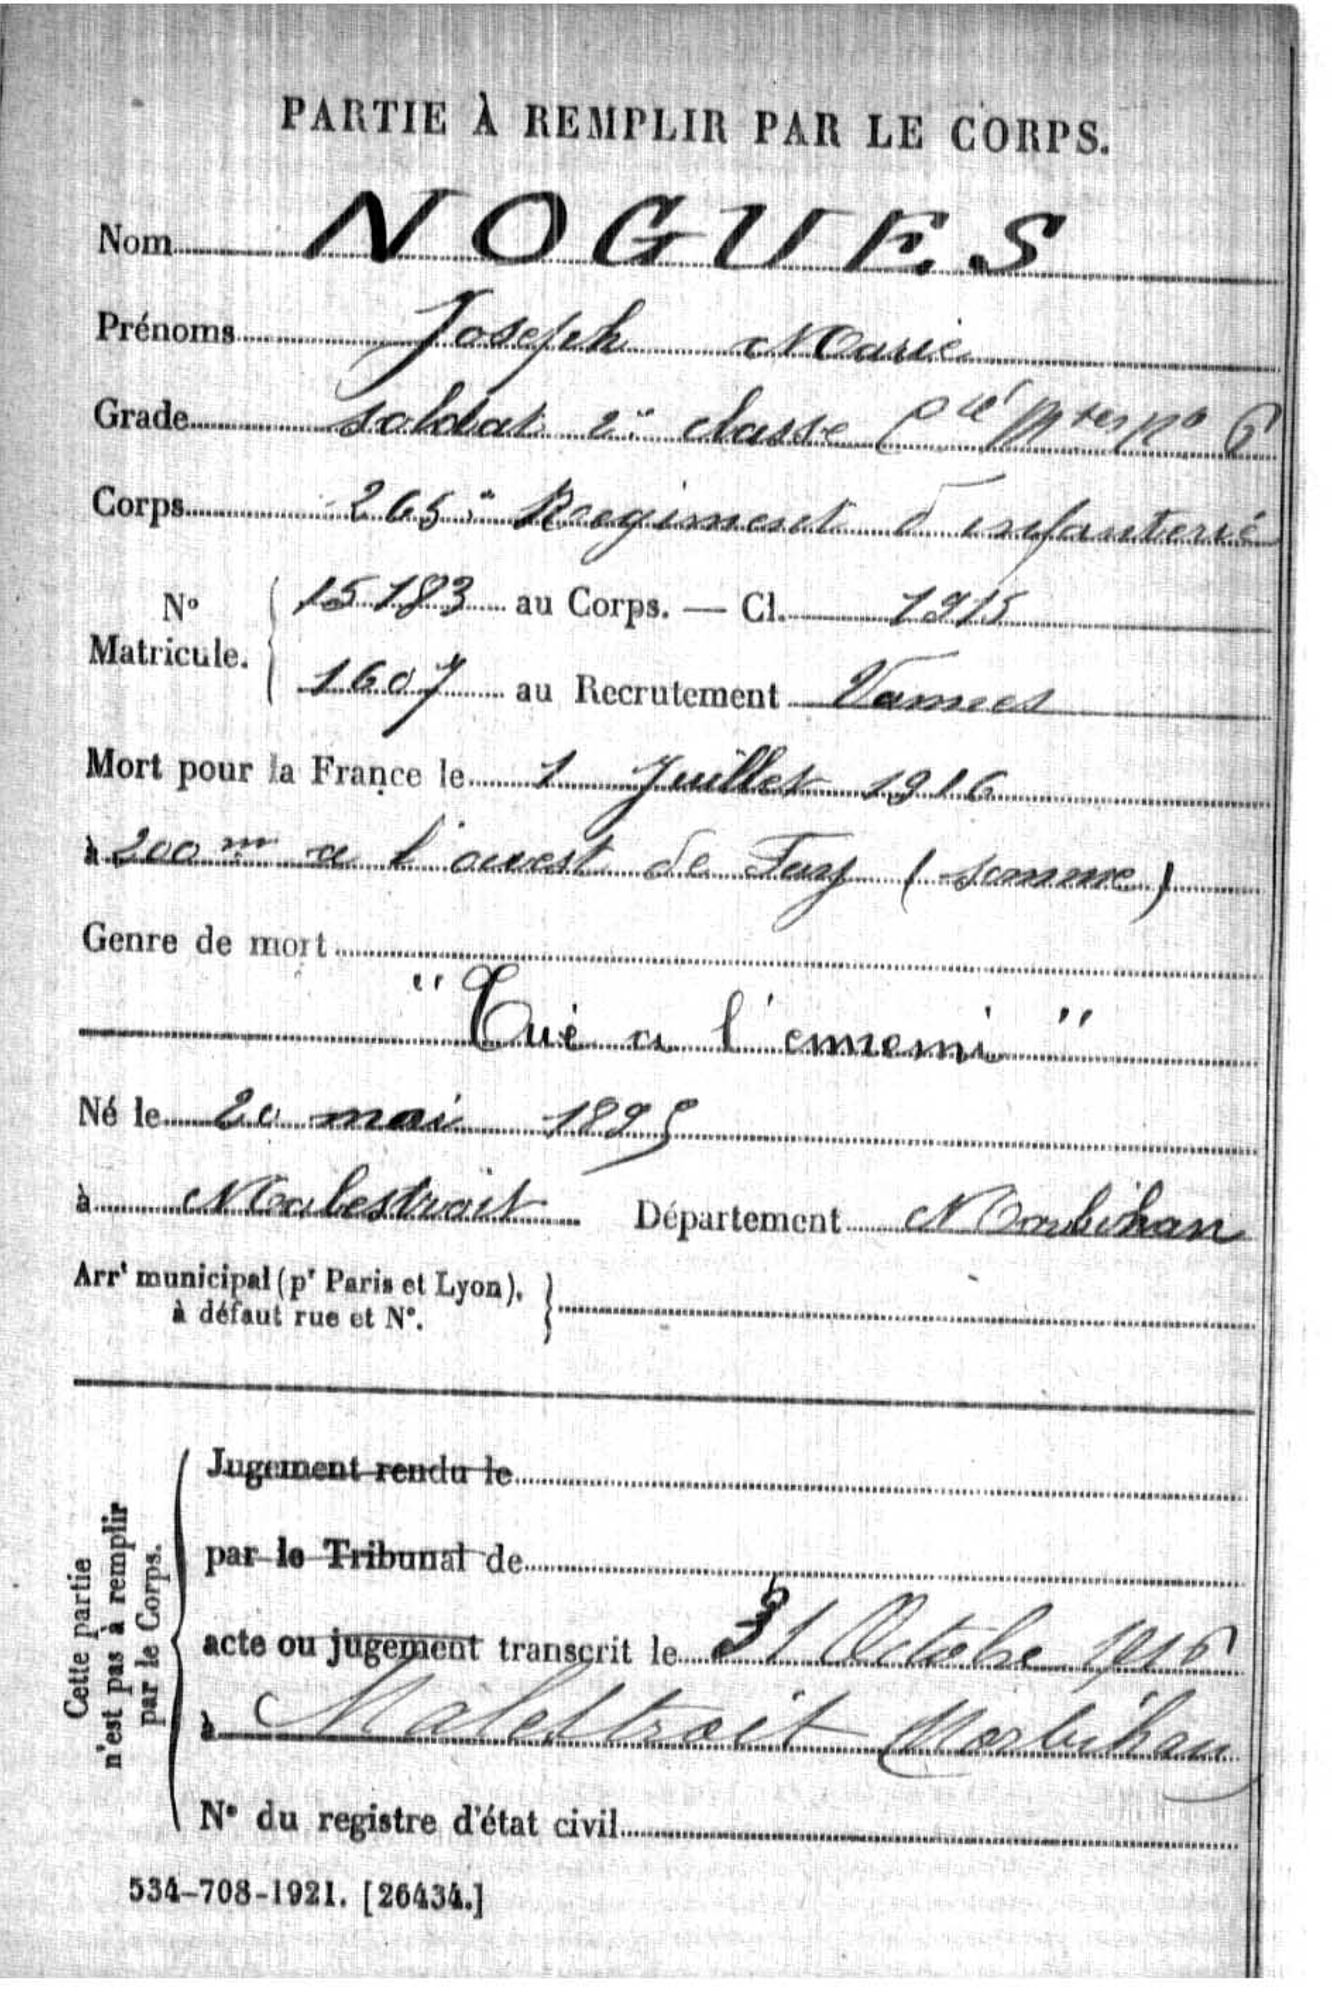 PARTIE À REMPLIR PAR LE CORPS.
Nom NOGUES
Prénoms Joseph Marie
Grade soldat 2e classe Cie Mses No 6
Corps 265e Regiment d'infanterie
No Matricule. 15 183 au Corps. — Cl. 1915
1607 au Recrutement Vannes
Mort pour la France le 1 Juillet 1916
à 200 m a l'ouest de Fay (somme)
Genre de mort
"Tué a l'ennemi"
Né le 20 mai 1895
à Malestroit Département Morbihan
Arrt municipal (pr Paris et Lyon),
à défaut rue et No.
Cette partie
n'est pas à remplir
par le Corps.
Jugement rendu le
par le Tribunal de
acte ou jugement transcrit le 31 Octobre 1916
à Malestroit Morbihan
No du registre d'état civil
534-708-1921. [26434.]